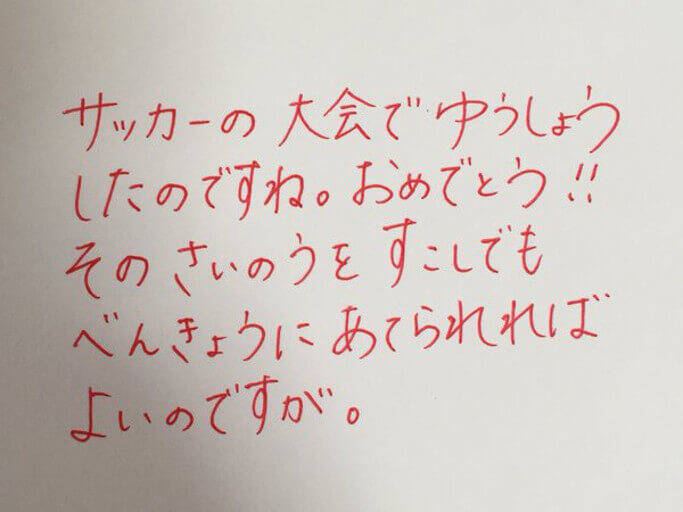 サッカーの 大会で ゆうしょう
したのですね。おめでとう!!
その さいのうを すこしでも
べんきょうに あてられれば
よいのですが。